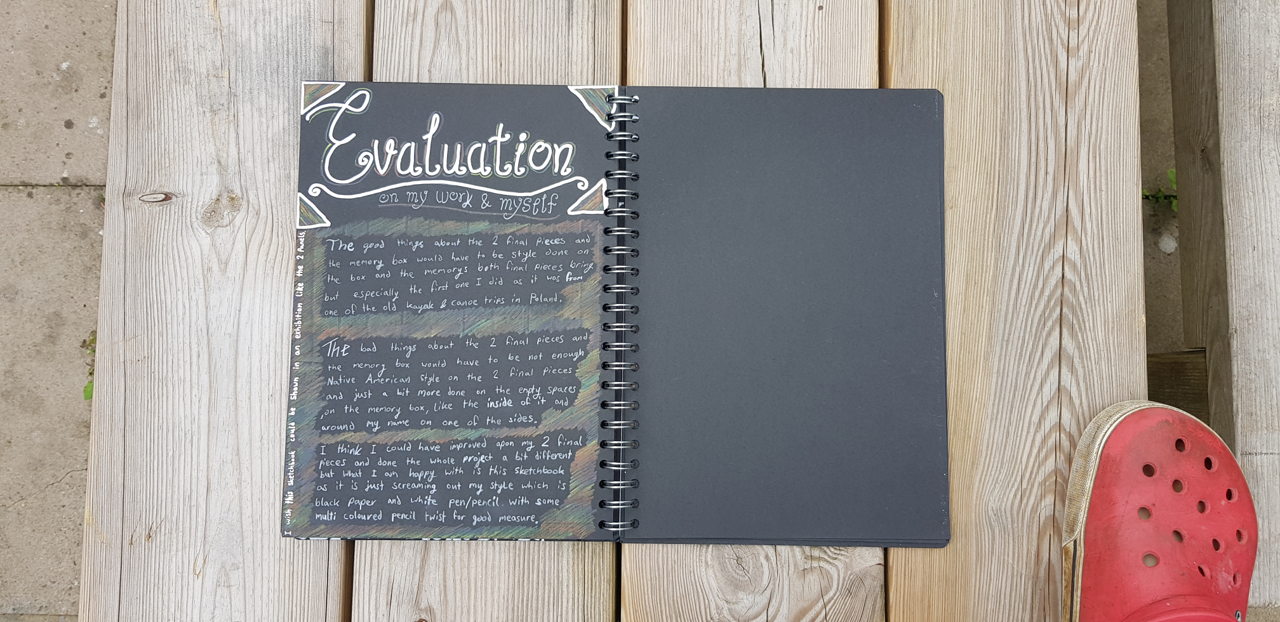 Evaluation
on my work & myself
The good things about the 2 final pieces and
the memory box would have to be style done on
the box and the memorys both final pieces bring
but especially the first one I did as it was from
one of the old kayak & canoe trips in Poland.
The bad things about the 2 final pieces and
the memory box would have to be not enough
Native American style on the 2 final pieces
and just a bit more done on the empty spaces
on the memory box, like the inside of it and
around my name on one of the sides.
I think I could have improved apon my 2 final
pieces and done the whole project a bit different
but what I am happy with is this sketchbook
as it is just screaming out my style which is
black paper and white pen/pencil with some
multi coloured pencil twist for good measure.
I wish this sketchbook could be shown in an exhibition like the 2